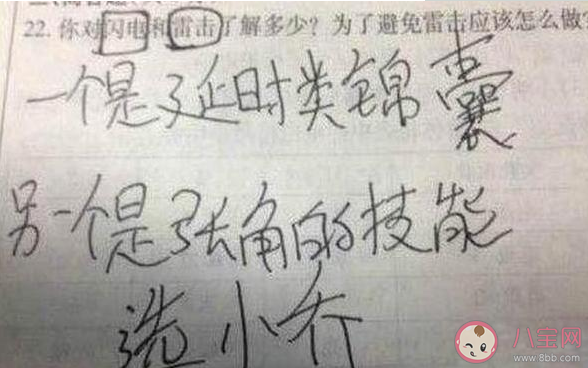 22. 你对闪电和雷击了解多少？为了避免雷击应该怎么做
一个是延时类锦囊
另一个是张角的技能
选小乔
八宝网
www.8bb.com